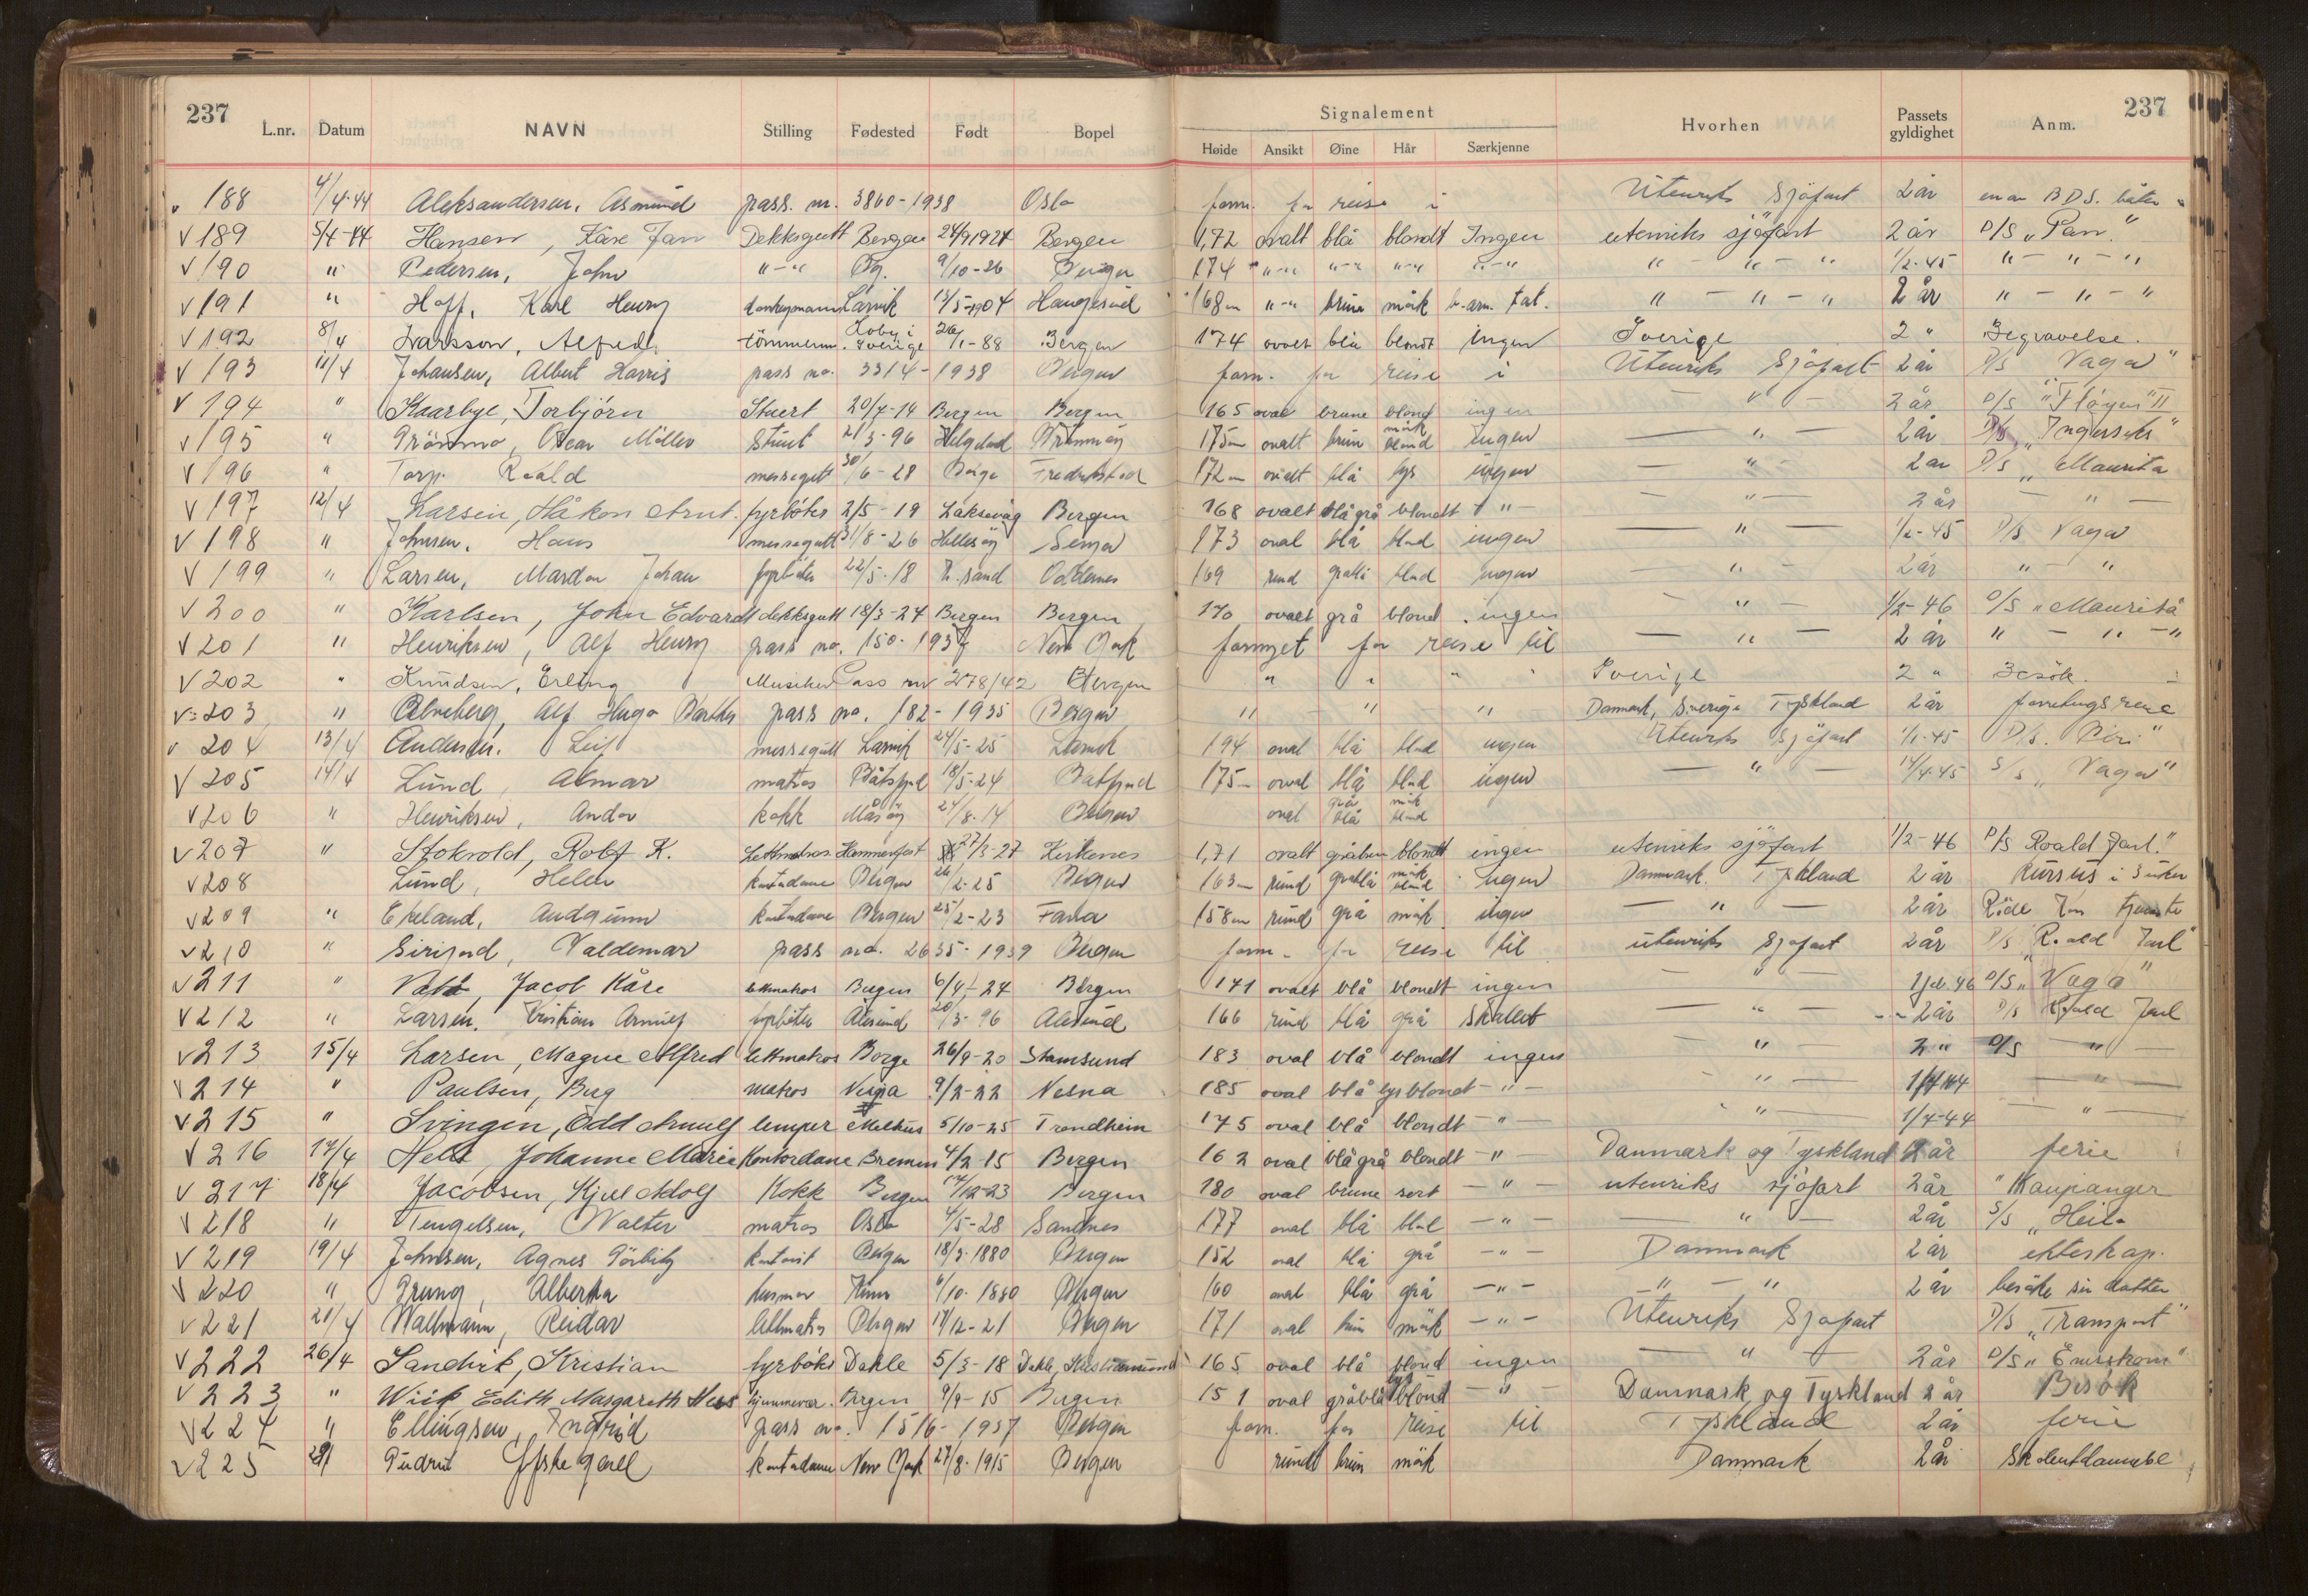 237 237
L.nr. Datum NAVN Stilling Fødested Født Bopel Signalement Hvorhen Passets gyldighet Anm.
Høide Ansikt Øine Hår Særkjenne
188 4/4-44 Aleksandersen, Asmund pass. nr. 3860-1938 Oslo forn. for reise i Utenriks Sjöfart 2 år en av B.D.S. båter
V 189 5/4-44 Hansen, Kåre Jan Dekksgutt Bergen 24/9 1924 Bergen 1,72 ovalt blå blondt Ingen utenriks sjøfart 2 år D/S "Pan."
V 190 " Pedersen, John "-" Bg. 9/10-26 Bergen 174 "-" "-" "-" "-" " - " - " 1/2-45 " - " - "
V 191 " Hoff, Karl Henry donkeymann Larvik 13/5-1904 Haugesund 168 cm "-" brune mörk h. arm. tat. " - " - " 2 år " - " - "
V 192 8/4 Ivarsson, Alfred tömmerm. Sverige 26/1-88 Bergen 174 ovalt blå blondt ingen Sverige 2 " Begravelse.
V 193 11/4 Johansen, Albert Harris pass no. 3314-1938 Bergen forn. for reise i Utenriks Sjöfart 2 år D/S Vaga"
V 194 " Kaarbye, Torbjörn Stuert 20/7-14 Bergen Bergen 165 oval brune blond ingen - " - 2 år D/S "Flöyen" II
V 195 " Grönmo, Oscar Möller Stuert 21/3-96 175 cm ovalt brun mörk blond ingen - " - 2 år D/S
V 196 " Torp. Roald messegutt 30/6-28 Borge Fredrikstad 172 cm ovalt blå lys ingen - " - 2 år D/S " Maurita
V 197 12/4 Larsen, Håkon Arnt. fyrböter 2/5-19 Laksevåg Bergen 168 ovalt blågrå blondt " - - " - 2 år - " -
V 198 " Johnsen, Hans messegutt 31/8-26 Hellesöy 173 oval blå blond ingen - " - 1/2-45 D/S Vaga
V 199 " Larsen, Mardon Johan fyrböter 22/5-18 K. sand Oddernes 169 rund gråblå blond ingen - " - 2 år " - "
V 200 " Karlsen, John Edvardt dekksgutt 18/3-24 Bergen Bergen 170 ovalt grå blond ingen - " - 1/2-46 D/S "Maurita
V 201 " Henriksen, Alf Henry pass no. 150-1937 New York fornyet for reise til - " - 2 år " - " - "
V 202 " Knudsen, Erling Musiker Pass nr 278/42 Bergen " " " Sverige 2 " Besök.
V 203 " Alf Hugo pass no. 182-1935 Bergen " " " Danmark, Sverige Tyskland 2 år forretningsreise
V 204 13/4 Andersen. Leif messegutt Larvik 24/5-25 Larvik 194 oval blå blond ingen Utenriks Sjöfart 1/1-45 D/S.
V 205 14/4 Lund, Almar matros Båtsfjord 18/5-24 Båtsfjord 175 cm oval blå blond ingen - " - 14/4-45 S/S "Vaga"
V 206 " Henriksen, Andor kokk Måsöy 24/8-14 Bergen oval grå blå mörk blond
V 207 " Stokvold, Rolf K. Lettmatros Hammerfest 27/3-27 Kirkenes 1,71 ovalt gråbrun blondt ingen utenriks sjøfart 1/2-46 D/S Roald Jarl."
V 208 " Lund, Helen kontordame Bergen 26/2-25 Bergen 163 cm rund gråblå mörk blond ingen Danmark. Tyskland 2 år Kursus i 3 uker
V 209 " Ekeland, Audgunn kontordame Bergen 25/2-23 Fana 158 cm rund grå mörk ingen - " - 2 år Röde Kors tjeneste
V 210 " Valdemar pass no. 2635-1939 Bergen forn. for reise til utenriks Sjöfart 2 år D/S "Roald Jarl"
V 211 " Jacob Kåre lettmatros Bergen 6/4-24 Bergen 171 ovalt blå blondt ingen - " - 1 feb. 46 D/S "Vaga"
V 212 " Larsen. Kristian Arnulf fyrböter Ålesund 20/3-96 Ålesund 166 rund blå grå skallet - " - 2 år D/S Roald Jarl
V 213 15/4 Larsen, Magne Alfred lettmatros Borge 26/9-20 Stamsund 183 oval blå blondt ingen - " - 2 " D/S - " -
V 214 " Paulsen, Birg matros Nesna 9/2-22 Nesna 185 oval blå lys blondt - " - - " - - " -
V 215 " Svingen, Odd Arnulf lemper Melhus 5/10-25 Trondheim 175 oval blå blondt - " - - " - 1/7-44 - " -
V 216 17/4 Johanne Marie Kontordame Bremen 4/2-15 Bergen 162 oval blågrå blondt - " - Danmark og Tyskland 2 år ferie
V 217 18/4 Jacobsen, Kjell Adolf Kokk Bergen 17/12-23 Bergen 180 oval brune sort - " - utenriks sjöfart 2 år "Kaupanger
V 218 " Tengelsen, Walter matros Oslo 4/5-28 Sandnes 177 oval blå blond - " - - " - 2 år S/S "Heilo
V 219 19/4 Johnsen, Agnes kontorist Bergen 18/3-1880 Bergen 152 oval blå grå - " - Danmark 2 år ekteskap.
V 220 " Grung, Alberta husmor Kinn 6/10-1880 Bergen 160 oval blå grå - " - " - " 2 år besöke sin datter
V 221 21/4 Wallmann, Reidar lettmatros Bergen 17/12-21 Bergen 171 oval brun mörk - " - Utenriks Sjöfart D/S "Transport"
V 222 26/4 Sandvik, Kristian fyrböter Dahle 5/3-18 Dahle, Kristiansund 165 oval blå blond ingen - " - 2 år D/S "
V 223 " Wiik Edith Margareth Hess hjemmevær. Bergen 9/9-15 Bergen 151 oval gråblå lys blond - " - Danmark og Tyskland 2 år Besök
V 224 " Ellingsen, Ingrid pass no. 1516-1937 Bergen forn. for reise til Tyskland 2 år ferie
V 225 kontordame New York 27/8-1915 Bergen rundt brun mörk Danmark 2 år